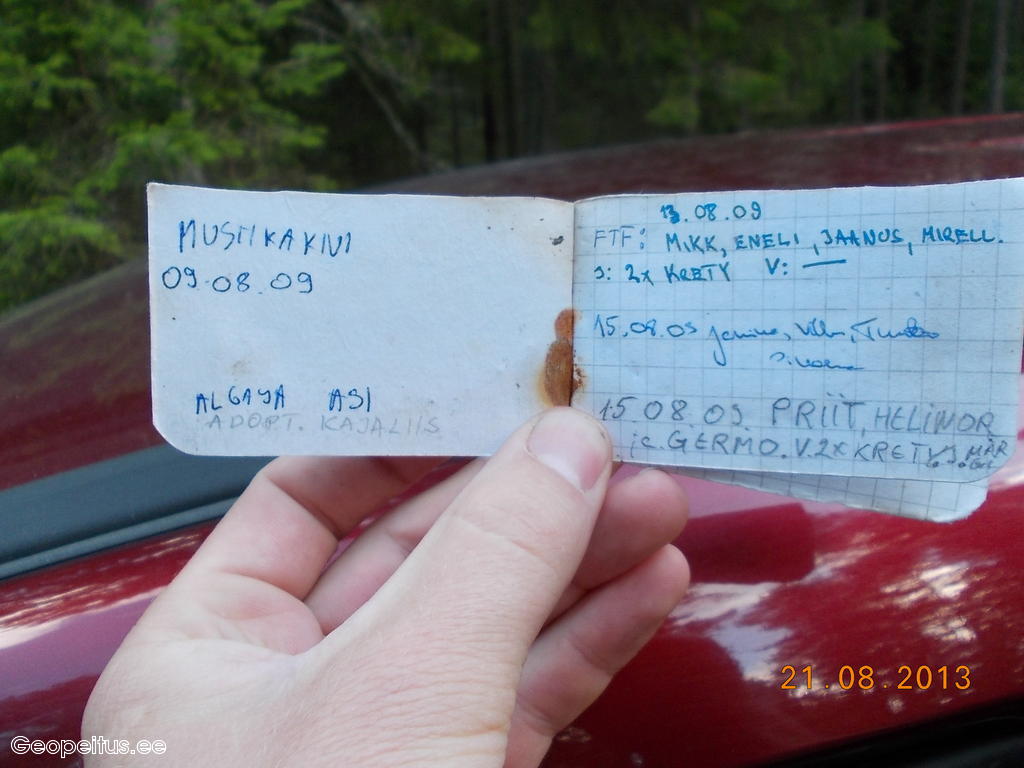 MUSTIKAKIVI
09.08.09
ALGAJA ASI
ADOPT. KAJALIIS
13.08.09
FTF: MIKK, ENELI, JAANUS, MIRELL.
J: 2x KRETY V: —
15.08.09 Janine,
15.08.09. PRIIT, HELINOR
ja GERMO. V. 2X KRETY J. MÄR
21.08.2013
Geopeitus.ee